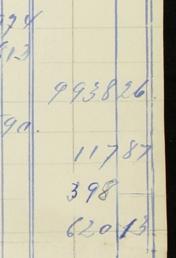 974
613
993826.
90.
11787
398
62013.